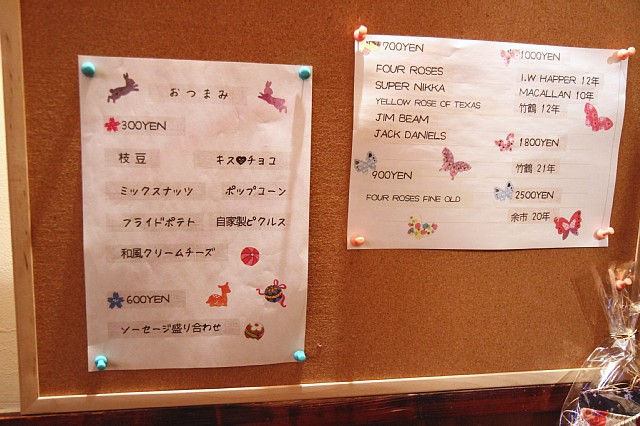 おつまみ
300YEN
枝豆 キス♥チョコ
ミックスナッツ ポップコーン
フライドポテト 自家製ピクルス
和風クリームチーズ
600YEN
ソーセージ盛り合わせ
700YEN
FOUR ROSES
SUPER NIKKA
YELLOW ROSE OF TEXAS
JIM BEAM
JACK DANIELS
900YEN
FOUR ROSES FINE OLD
1000YEN
I.W HAPPER 12年
MACALLAN 10年
竹鶴 12年
1800YEN
竹鶴 21年
2500YEN
余市 20年